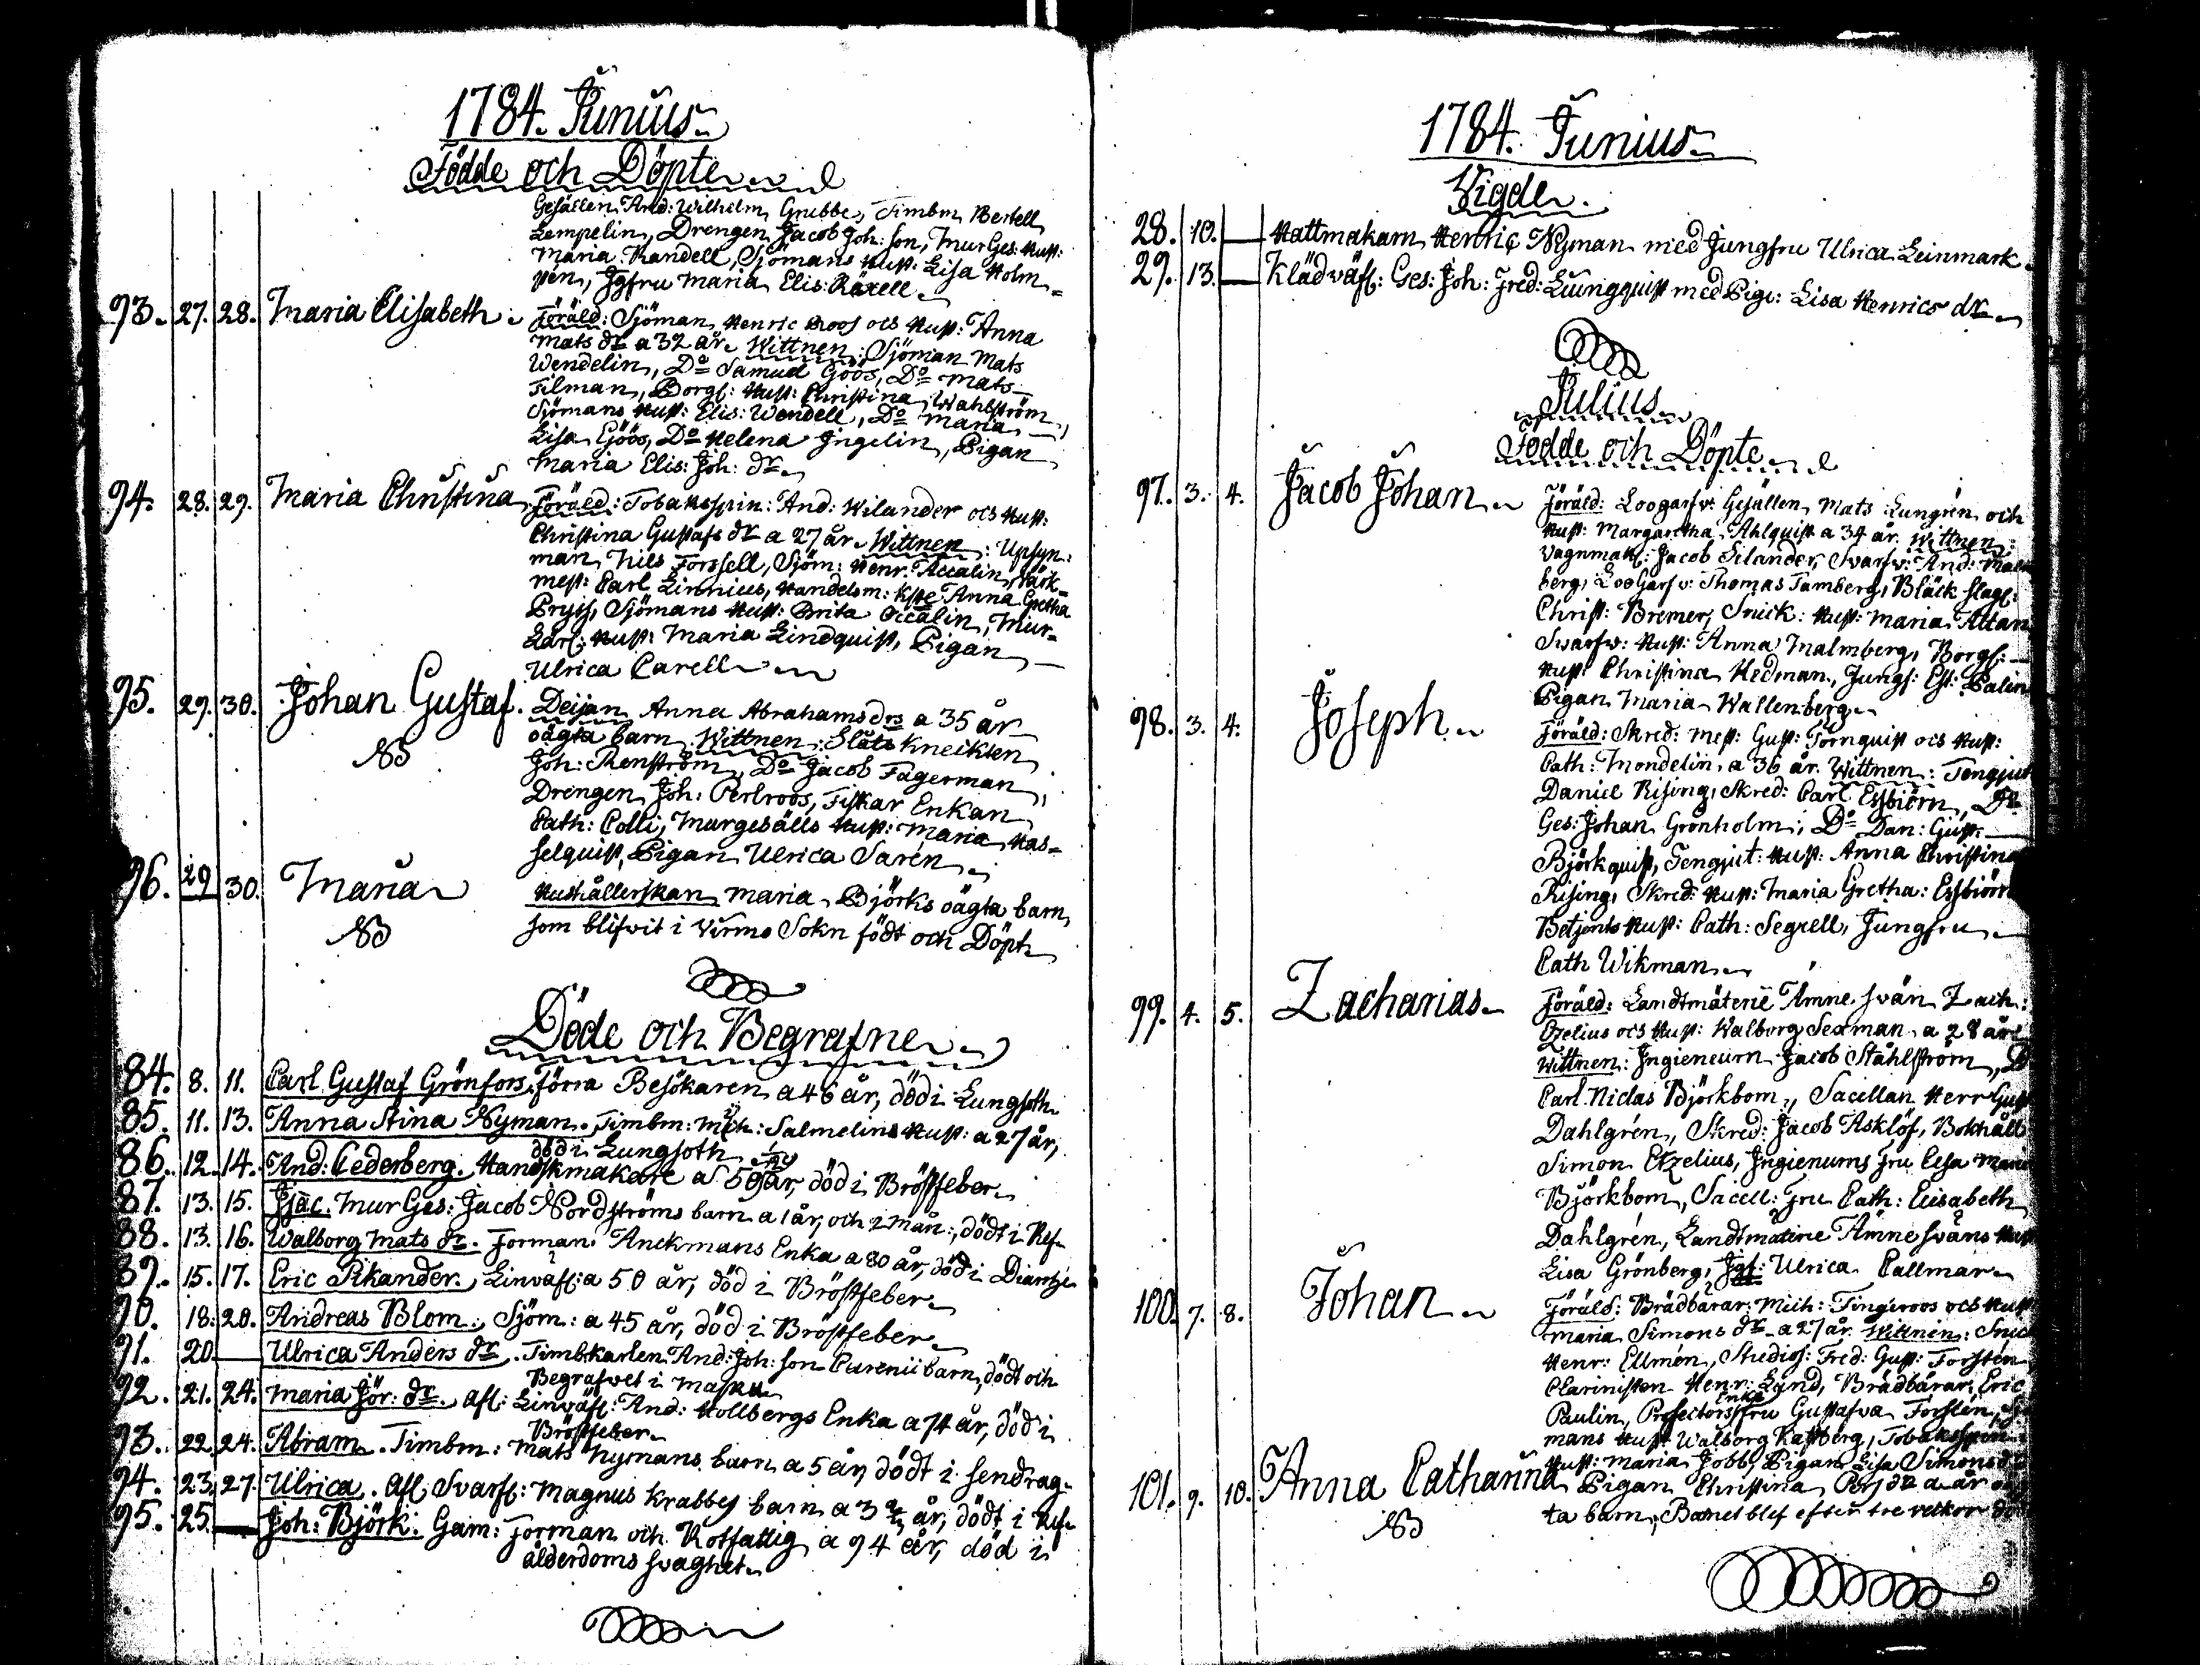 1784. Junius
Födde och Döpte
Gesällen And: Wilhelm Grubbe, Timbm Bertell
Lempelin, Drengen Jacob Joh: son, Mur Ges: Hust:
Maria Randell, Sjömans Hust: Lisa Holm=
sten, Jgfru Maria Elis: Räxell
93. 27. 28. Maria Elisabeth. Föräld: Sjöman Henric Roos och Hust: Anna
Mats dr a 32 år. Wittnen: Sjöman Mats
Wendelin, Do Samuel Göös, Do Mats
Tilman, Borgs: Hust: Christina Wahlström,
Sjömans Hust: Elis: Wendell, Do Maria
Lisa Göös, Do Helena Ingelin, Pigan
Maria Elis: Joh: dr
94. 28. 29. Maria Christina Föräld: Tobaksspin: And: Wilander och Hust:
Christina Gustafs dr a 27 år. Wittnen: Upsyn:
man Nils Forssell, Sjöm: Henr: Accalin, Värk=
mest: Carl Linnius, Handelsm: Anna Gretha
Pryss, Sjömans Hust: Brita Accalin, Mur=
Lärl: Hust: Maria Lindquist, Pigan
Ulrica Carell
95. 29. 30. Johan Gustaf. Deijan Anna Abrahams drs a 35 år
oägta barn. Wittnen: Slåts kneckten
NB Joh: Renström, Do Jacob Fagerman,
Drengen Joh: Perlroos, Fiskar Enkan
Cath: Colli, Murgesälls Hust: Maria Has=
selquist, Pigan Ulrica Sarén
96. 29 30. Maria Hushållerskan Maria Björks oägta barn,
NB som blifvit i Virmo Sokn födt och Döpt
Döde och Begrafne
84. 8. 11. Carl Gustaf Grönfors, Förra Besökaren a 46 år, död i Lungsoth
85. 11. 13. Anna Stina Nyman. Timbm: Mich: Salmelins Hust: a 27 år,
död i Lungsoth
86. 12. 14. And: Cederberg. Handskmakare a 59 år, död i Bröstfeber
87. 13. 15. Isac. Mur Ges: Jacob Nordströms barn a 1 år, och 2 Mån:, dödt i Ref
88. 13. 16. Walborg Mats dr. Forman Anckmans Enka a 80 år, död i Diarrhé
89. 15. 17. Eric Sikander. Linväfs: a 50 år, död i Bröstfeber
90. 18. 20. Andreas Blom. Sjöm: a 45 år, död i Bröstfeber
91. 20 — Ulrica Anders dr. Timbkarlen And: Joh: son Curenii barn, dödt och
Begrafvet i Masku
92. 21. 24. Maria Jör: dr. Afl: Linväfs: And: Hollbergs Enka a 74 år, död i
Bröstfeber
93. 22. 24. Abram. Timbm: Mats Nymans barn a 5 år, dödt i sendrag
94. 23. 27. Ulrica. Afl: Svarfs: Magnus Krabbes barn a 3 år, dödt i Ref
95. 25. — Joh: Björk. Gam: Forman och Rotfattig a 94 år, död i
ålderdoms svaghet
1784. Junius
Vigde
28. 10. — Hattmakarn Henric Nyman med Jungfru Ulrica Leinmark
29. 13. — Klädväfs: Ges: Joh: Fred: Liungquist med Pig: Lisa Henrics dr
Julius
Födde och Döpte
97. 3. 4. Jacob Johan Föräld: Loogarfv: Gesällen Mats Lungren och
Hust: Margaretha Ahlquist a 34 år. Wittnen:
Vagnmak: Jacob Silander, Svarfv: And: Malm
berg, Loogarfv: Thomas Tamberg, Bläck slag:
Christ: Bremer, Snick: Hust: Maria Attan
Svarfv: Hust: Anna Malmberg, Borgs:
Hust: Christina Hedman, Jungf: Palin
Pigan Maria Wallenberg
98. 3. 4. Joseph Föräld: Skred: Mest: Gust: Törnquist och Hust:
Cath: Mondelin a 36 år. Wittnen: Tengjut
Daniel Rising, Skred: Carl Essbiörn, Do
Ges: Johan Grönholm, Do Dan: Gust:
Björkquist, Tengjut: Hust: Anna Christina
Rising, Skred: Hust: Maria Gretha Essbiörn
Betjents Hust: Cath: Segrell, Jungfru
Cath Wikman
99. 4. 5. Zacharias Föräld: Landtmäterie Ämne svän Zach:
Ezelius och Hust: Walborg Sexman a 28 år
Wittnen: Ingieneurn Jacob Ståhlström, Do
Carl Niclas Björkbom, Sacellan Herr Gust
Dahlgrén, Skred: Jacob Asklöf, Bokhåll
Simon Etzelius, Ingieneurns fru Elsa Maria
Björkbom, Sacell: Fru Cath: Elisabeth
Dahlgrén, Landtmäterie Ämnesväns Hust
Lisa Grönberg, Jgf: Ulrica Callmar
100. 7. 8. Johan Föräld: Brädbärar: Mich: Tingeroos och Hust
Maria Simons dr a 27 år. Wittnen: Snick
Henr: Ellmén, Studios: Fred: Gust: Forstén
Clarinisten Henr: Lynd, Brädbärar Eric
Paulin, Professors Enke fru Gustafva Forslen,
mans Hust Walborg Rastberg, Tobaksspin
Hust: Maria Jobb, Pigan Lisa Simons d
101. 9. 10. Anna Catharina Pigan Christina dr a år
NB ta barn, Barnet blef efter tre veckor